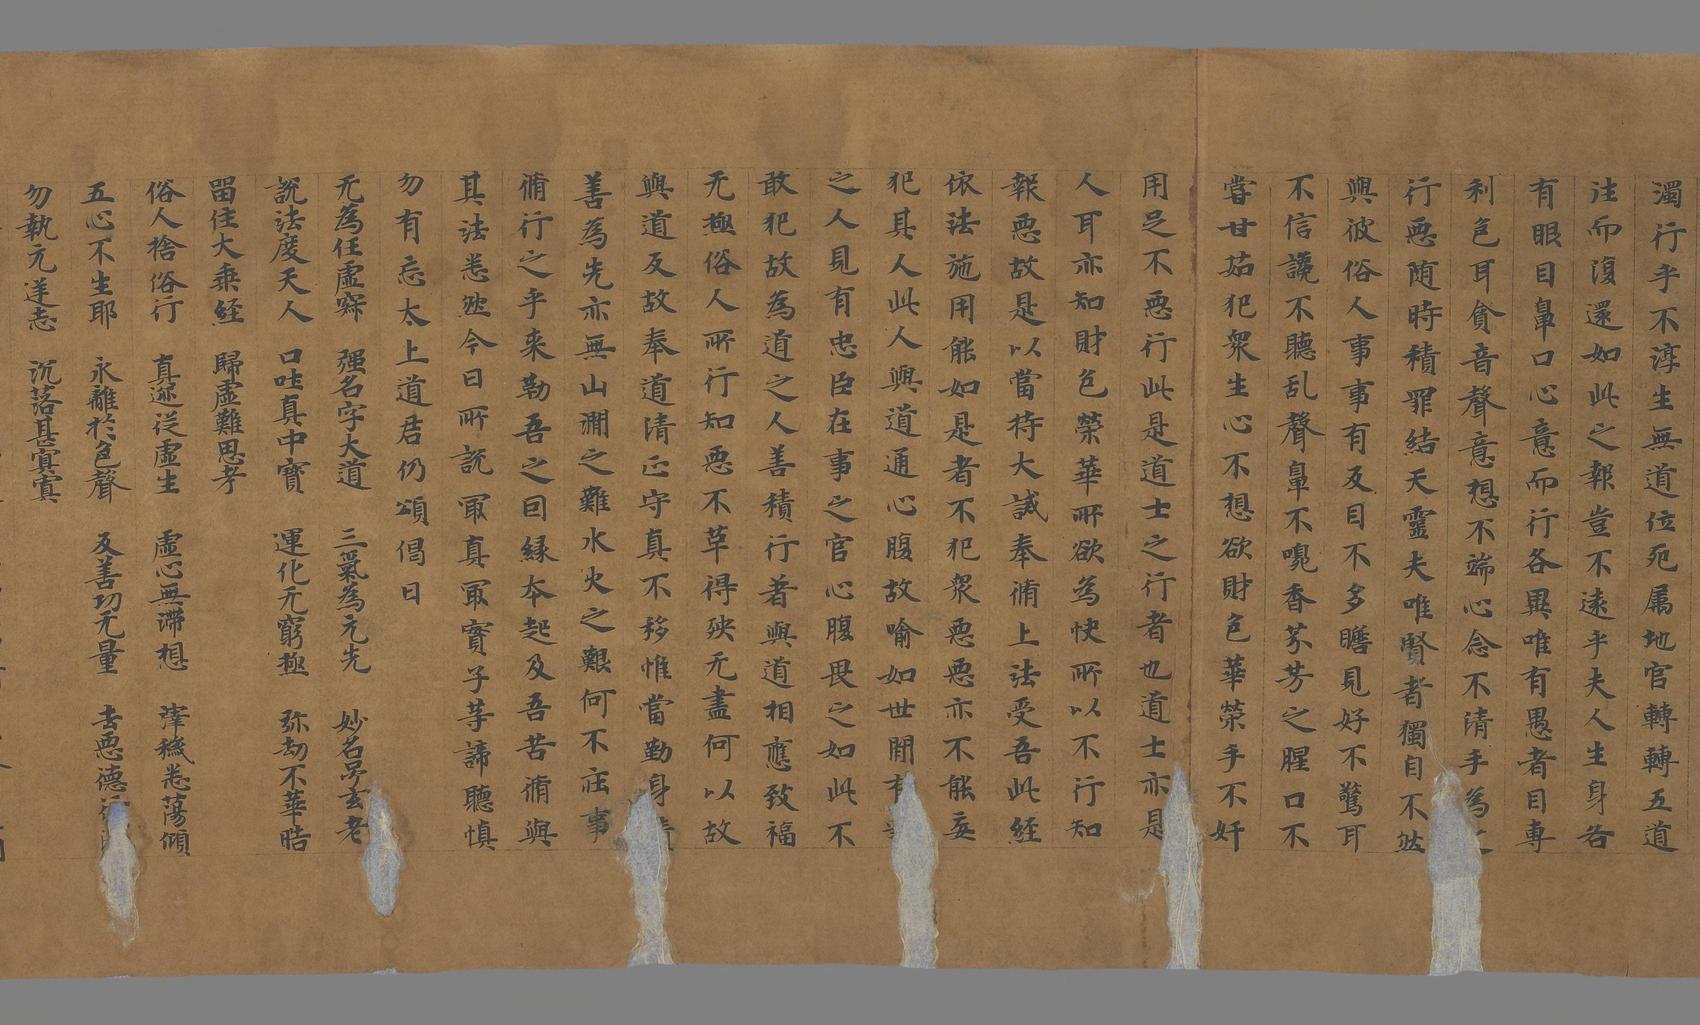 濁行乎不淳生無道位死属地官轉轉五道
注而復還如此之報豈不遠乎夫人生身各
有眼目鼻口心意而行各異唯有愚者目専
利色耳貪音聲意想不端心念不清手為
行惡随時積罪結天靈夫唯賢者獨自不然
與彼俗人事事有反目不多瞻見好不驚耳
不信讒不聽乱聲鼻不嗅香芬芳之腥口不
甞甘茹犯衆生心不想欲財色華榮手不奸
用足不惡行此是道士之行者也道士亦是
人耳亦知財色榮華所欲為快所以不行知
報惡故是以當持大誡奉脩上法受吾此經
依法施用能如是者不犯衆惡惡亦不能妄
犯其人此人與道通心腹故喻如世間
之人見有忠臣在事之官心腹畏之如此不
敢犯故為道之人善積行者與道相應致福
无極俗人所行知惡不革得殃无盡何以故
與道反故奉道清正守真不移惟當勤身
善為先亦無山澗之難水火之艱何不症事
脩行之乎来勒吾之曰縁本起及吾苦脩與
其法悉然今日所説冣真冣實子等諦聽慎
勿有忘太上道君仍頌偈曰
无為任虚寂　强名字大道　三氣為元先　妙名昺玄老
説法度天人　口吐真中寳　運化无窮極　弥劫不華晧
留住大乘經　歸虚難思考
俗人捨俗行　真迹従虚生　虚心無滞想　滓穢悉蕩傾
五心不生耶　永離於色聲　反善功无量　去惡德
勿執元迷志　沉落甚冥冥